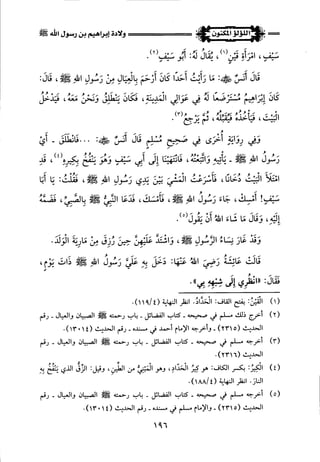 اللؤلؤ المكنون
ولادة إبراهيم بن رسول الله ﷺ
سيف، امرأة قين(١)، يقال له: أبو سيف(٢).
قال أنس رضي الله عنه: ما رأيت أحدا كان أرحم بالعيال من رسول الله ﷺ، قال:
كان إبراهيم مسترضعا له في عوالي المدينة، فكان ينطلق ونحن معه، فيدخل
البيت، فيأخذه فيقبله، ثم يرجع(٣).
وفي رواية أخرى في صحيح مسلم قال أنس رضي الله عنه: ... فانطلق - أي
رسول الله ﷺ - يأتيه واتبعته، فانتهينا إلى أبي سيف وهو ينفخ بكيره(٤)، قد
امتلأ البيت دخانا، فأسرعت المشي بين يدي رسول الله ﷺ، فقلت: يا أبا
سيف! أمسك، جاء رسول الله ﷺ، فأمسك، فدعا النبي ﷺ بالصبي، فضمه
إليه، وقال ما شاء الله أن يقول(٥).
قالت عائشة رضي الله عنها: فجاء به رسول الله ﷺ ذات يوم،
فقال: «انظري إلى شبهه بي».
(١) القين: بفتح القاف: الحداد. انظر النهاية (٤/ ١١٩).
(٢) أخرج ذلك مسلم في صحيحه - كتاب الفضائل - باب رحمته ﷺ الصبيان والعيال - رقم
الحديث (٢٣١٥) - وأخرجه الإمام أحمد في مسنده - رقم الحديث (١٣٠١٤).
(٣) أخرجه مسلم في صحيحه - كتاب الفضائل - باب رحمته ﷺ الصبيان والعيال - رقم
الحديث (٢٣١٦).
انظر النهاية (٤/ ١٨٨).
(٥) أخرجه مسلم في صحيحه - كتاب الفضائل - باب رحمته ﷺ الصبيان والعيال - رقم
الحديث (٢٣١٥) - والإمام أحمد في مسنده - رقم الحديث (١٣٠١٤).
١٩٦